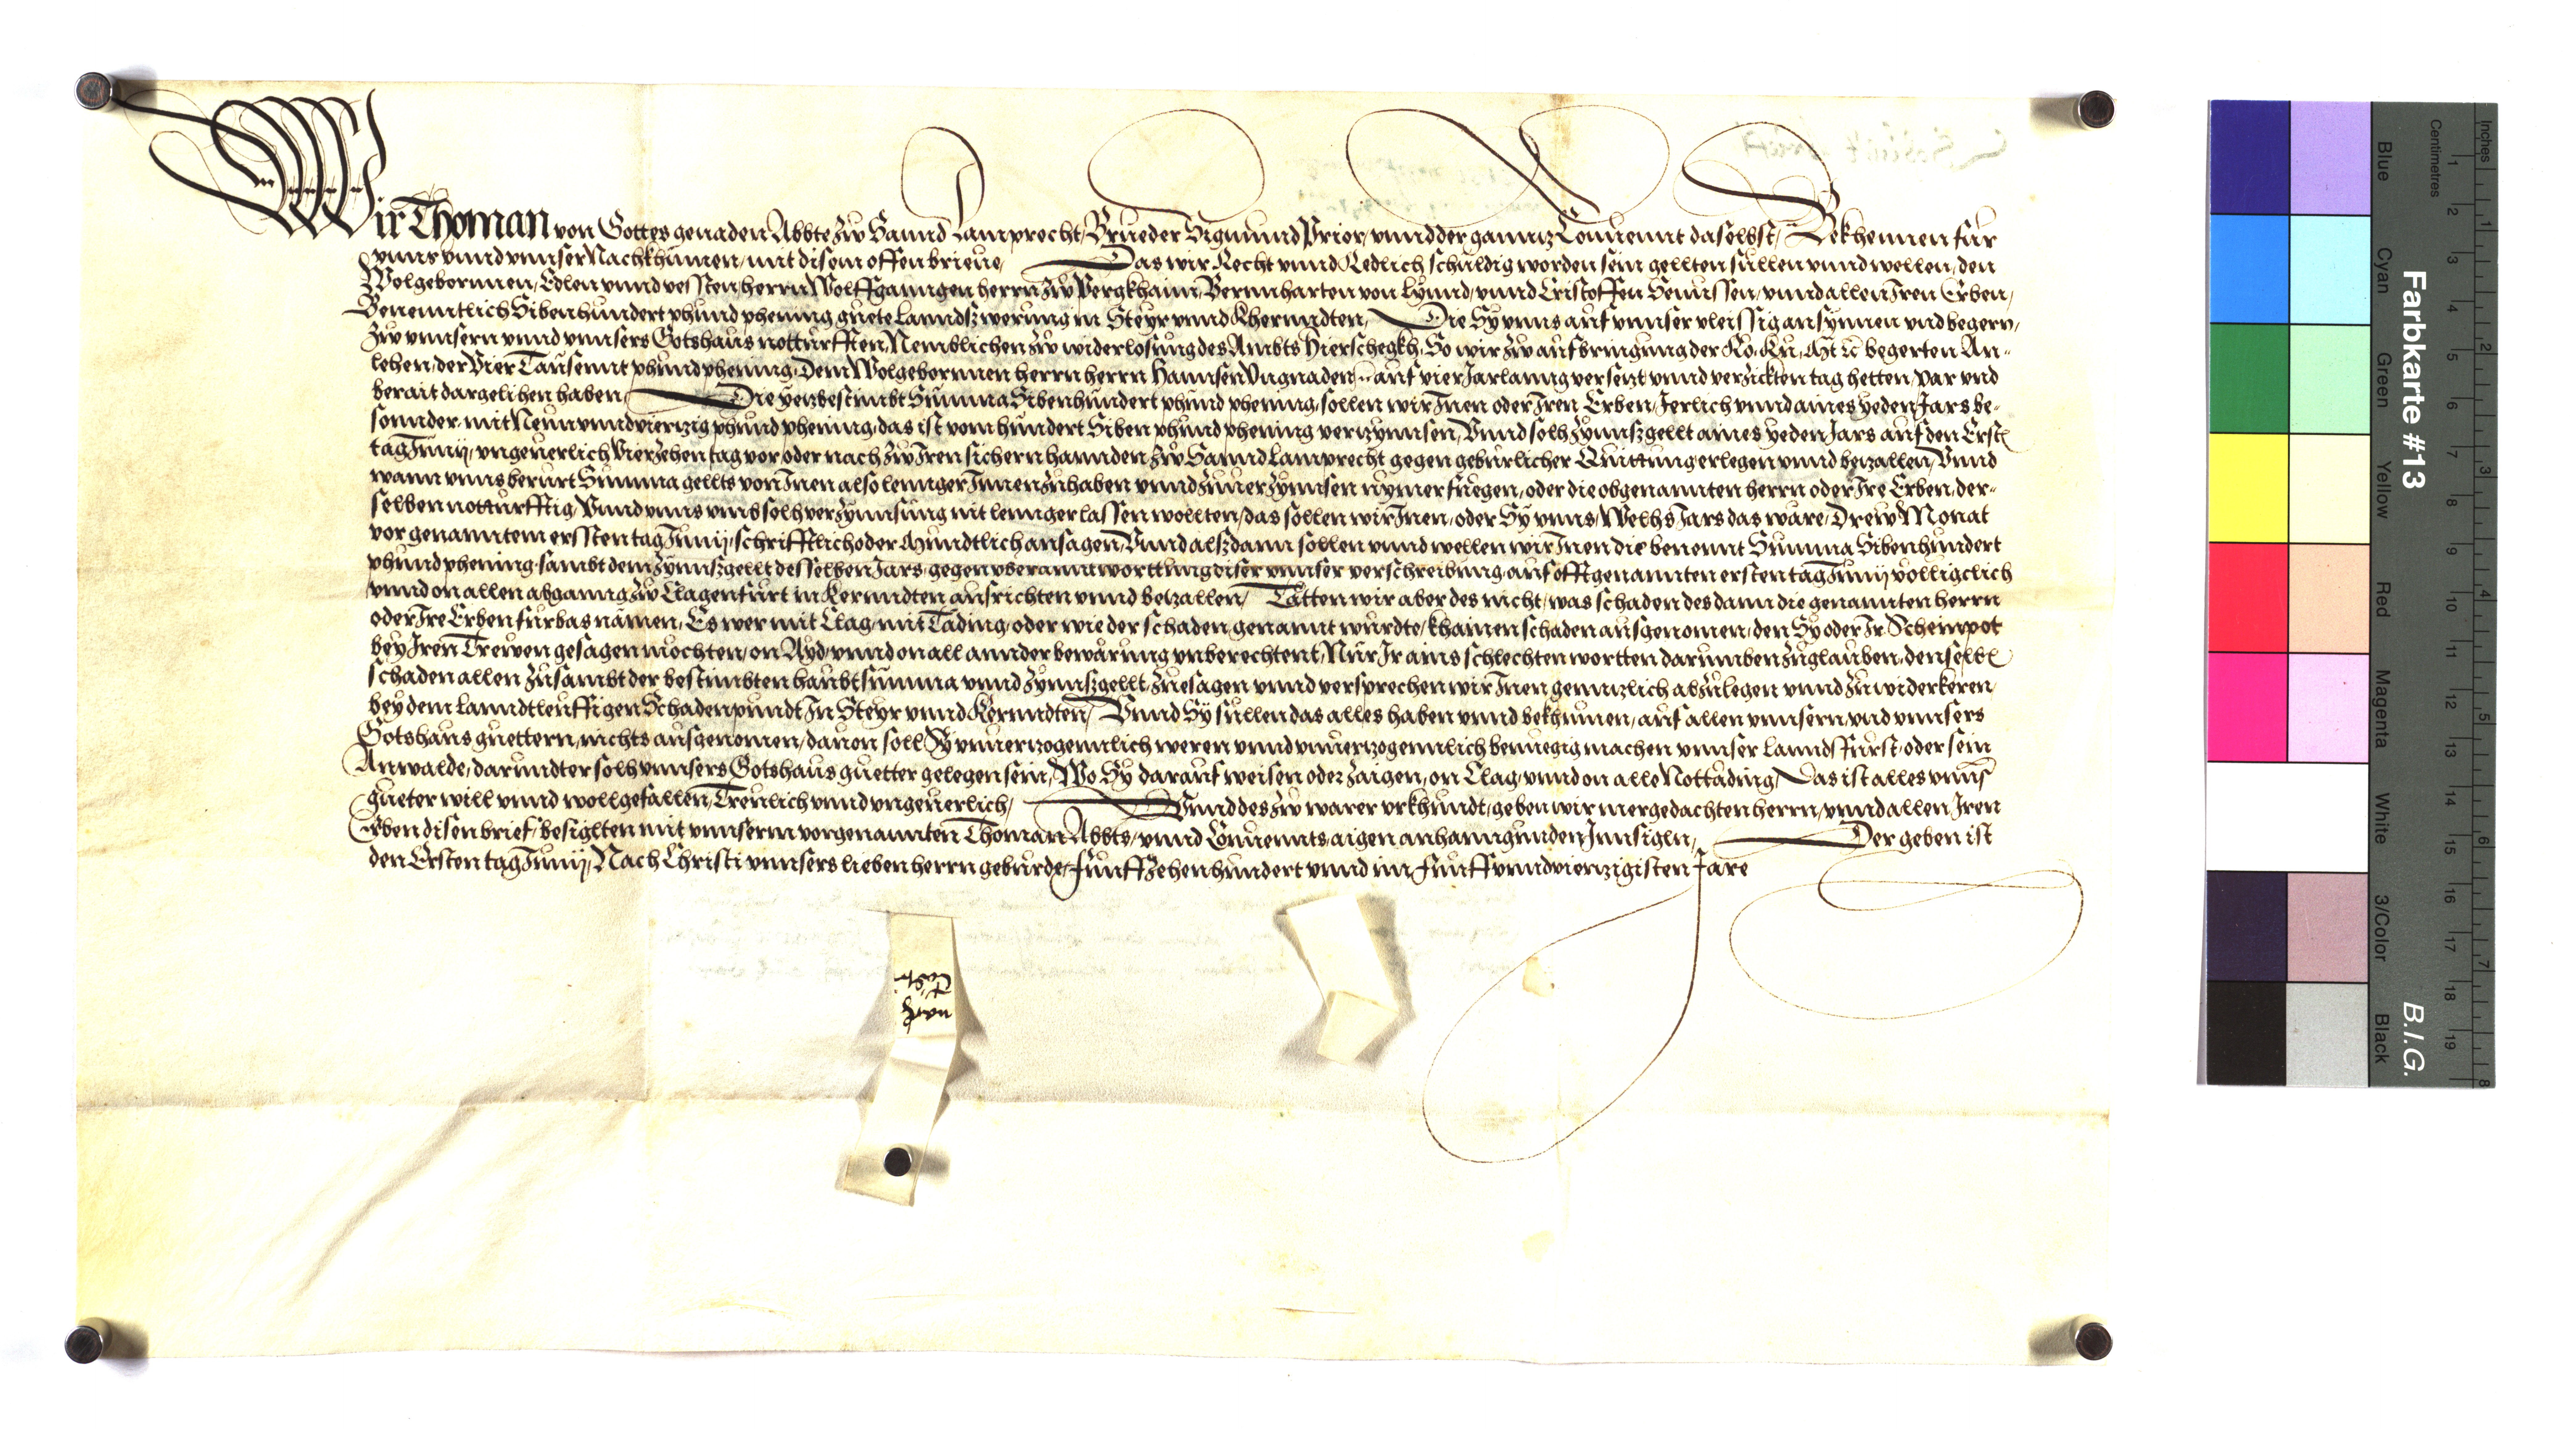 Wir Thoman von Gottes genaden Abbte zw Sannd Lamprecht, Brueder Sigmund Prior, vnnd der gannz Conuennt daselbst, Bekhennen fur
vnns vnnd vnnser Nachkhumen, mit disem offen brieue, Das wir Recht vnnd Redlich schuldig worden sein gellten sullen vnnd wellen, den
Wolgebornnen, Edlen vnnd vessten, herrn Wolffganngen herrn zw Pergkhaim, Bernnharten von Lynnd, vnnd Cristoffen Senussen, vnnd allen Iren Erben,
Benenntlich Sibenhundert phund phening guete Lanndszwerung in Steyr vnnd Kherndten, Die Sy vnns auf vnnser vleissig ansynnen vnd begern,
zw vnnsern vnnd vnnsers Gotshaus notturfften, Nemblichen zw widerlosung des Ambts Hierschegkh, So wir zw aufbringung der Ro. Ku. Mt. rc begerten An-
lehen, der Vier Tausennt phund phening, Dem Wolgebornnen herrn herrn Hannsen Vngnaden rc auf vier Jar lanng versezt vnnd verzickten tag hetten, par vnd
berait dargelihen haben, Die yezbestimbt Summa Sibenhundert phund phening, sollen wir Inen oder Iren Erben, Jerlich vnnd aines yeden Jars be-
sonnder, mit Neun vnnd vierzig phund phening, das ist vom hundert Siben phund phening verzynnsen, Vnnd solh zynnszgellt aines yeden Jars auf den Erstn
tag Junij, vngeuerlich Vierzehen tag vor oder nach zw Iren sichern hannden zw Sannd Lamprecht gegen geburlicher Quittung erlegen vnnd bezallen, Vnnd
wann vnns berurt Summa gellts von Inen also lennger Innen zuhaben vnnd zuuerzynnsen nymer fuegen, oder die obgenannten herrn oder Ire Erben, der-
selben notturfftig, Vnnd vnns vmb solh verzynnsung nit lennger lassen wollten, das sollen wir Inen, oder Sy vnns, Welhs Jars das wäre, Drew Monat
vor genanntem erssten tag Junij, schrifftlich oder Mundtlich ansagen, Vnnd alszdann sollen vnnd wellen wir Inen die benennt Summa Sibenhundert
phund phening, sambt dem zynnszgellt desselben Jars, gegen vberanntworttung diser vnnser verschreibung, auf offtgenannten ersten tag Junij volligclich
vnnd on allen abganng, zw Clagenfurt in Kernndten ausrichten vnnd bezallen, Tätten wir aber des nicht, was schaden des dann die genannten herrn
oder Ire Erben furbas nämen, Es wer mit Clag, mit Täding, oder wie der schaden genannt wurdte, khainen schaden ausgenomen, den Sy oder Ir Scheinpot
bey Iren Trewen gesagen mochten, on Ayd, vnnd on all annder bewärung vnberechtent, Nur Ir ains schlechten wortten darumben zuglauben, denselbn
schaden allen zusambt der bestimbten haubtsumma vnnd zynnszgellt, zuesagen vnnd versprechen wir Inen genntzlich abzulegen vnnd zuwiderkeren
bey dem lanndtleuffigen Schadenpundt In Steyr vnnd Kernndten, Vnnd Sy sullen das alles haben vnnd bekhumen, auf allen vnnsern, vnd vnnsers
Gotshaus guettern, nichts ausgenomen, dauon soll Sy vnuerzogennlich weren vnnd vnuerzogennlich benuegig machen vnnser Lannds Furst, oder sein
Anwalde, darundter solh vnnsers Gotshaus guetter gelegen sein, Wo Sy darauf weisen oder zaigen, on Clag, vnnd on alle Nottäding, Das ist alles vnnser
gueter will vnnd wollgefallen, Treulich vnnd vngeuerlich, Vnnd des zw warer vrkhundt, geben wir mergedachten herrn, vnnd allen Iren
Erben disen brief, besiglten mit vnnserm vorgenannten Thoman Abbts, vnnd Conuennts aigen anhanngunden Innsigln, Der geben ist
den Ersten tag Junij, Nach Christi vnnsers lieben herrn geburde, Funffzehenhundert vnnd im Funff vnndvierzigisten Jare
Farbkarte #13
B.I.G.
Centimetres
Inches
Blue
Cyan
Green
Yellow
Red
Magenta
White
3/Color
Black
1 2 3 4 5 6 7 8 9 10 11 12 13 14 15 16 17 18 19
1 2 3 4 5 6 7 8